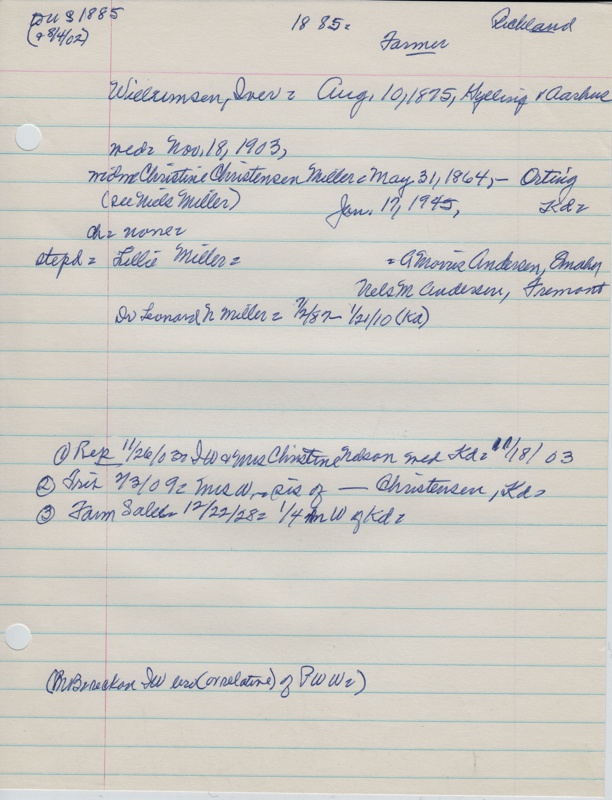 1885 1885= Richland
(9 8/4/02) Farmer
Willumsen, Iver = Aug. 10, 1875, Hyeling & Aarhus
med= Nov. 18, 1903,
Christine Christensen Miller = May 31, 1864, - Orting
(see Niels Miller) Jan. 17, 1945, Kd=
ch= none=
stepd= Lillie Miller= = A Morris Andersen, Omaha
Nels M Andersen, Fremont
Dr Leonard N Miller= - 1/21/10 (Kd)
① Rep 11/26/03= IW & Mrs Christine Nelson med Kd= 11/18/03
② Trib 7/3/09= Mrs W, - sis of — Christensen, Kd=
③ Farm Sale= 12/22/28= 1/4 m W of Kd=
IW (or relative) of PWW=)